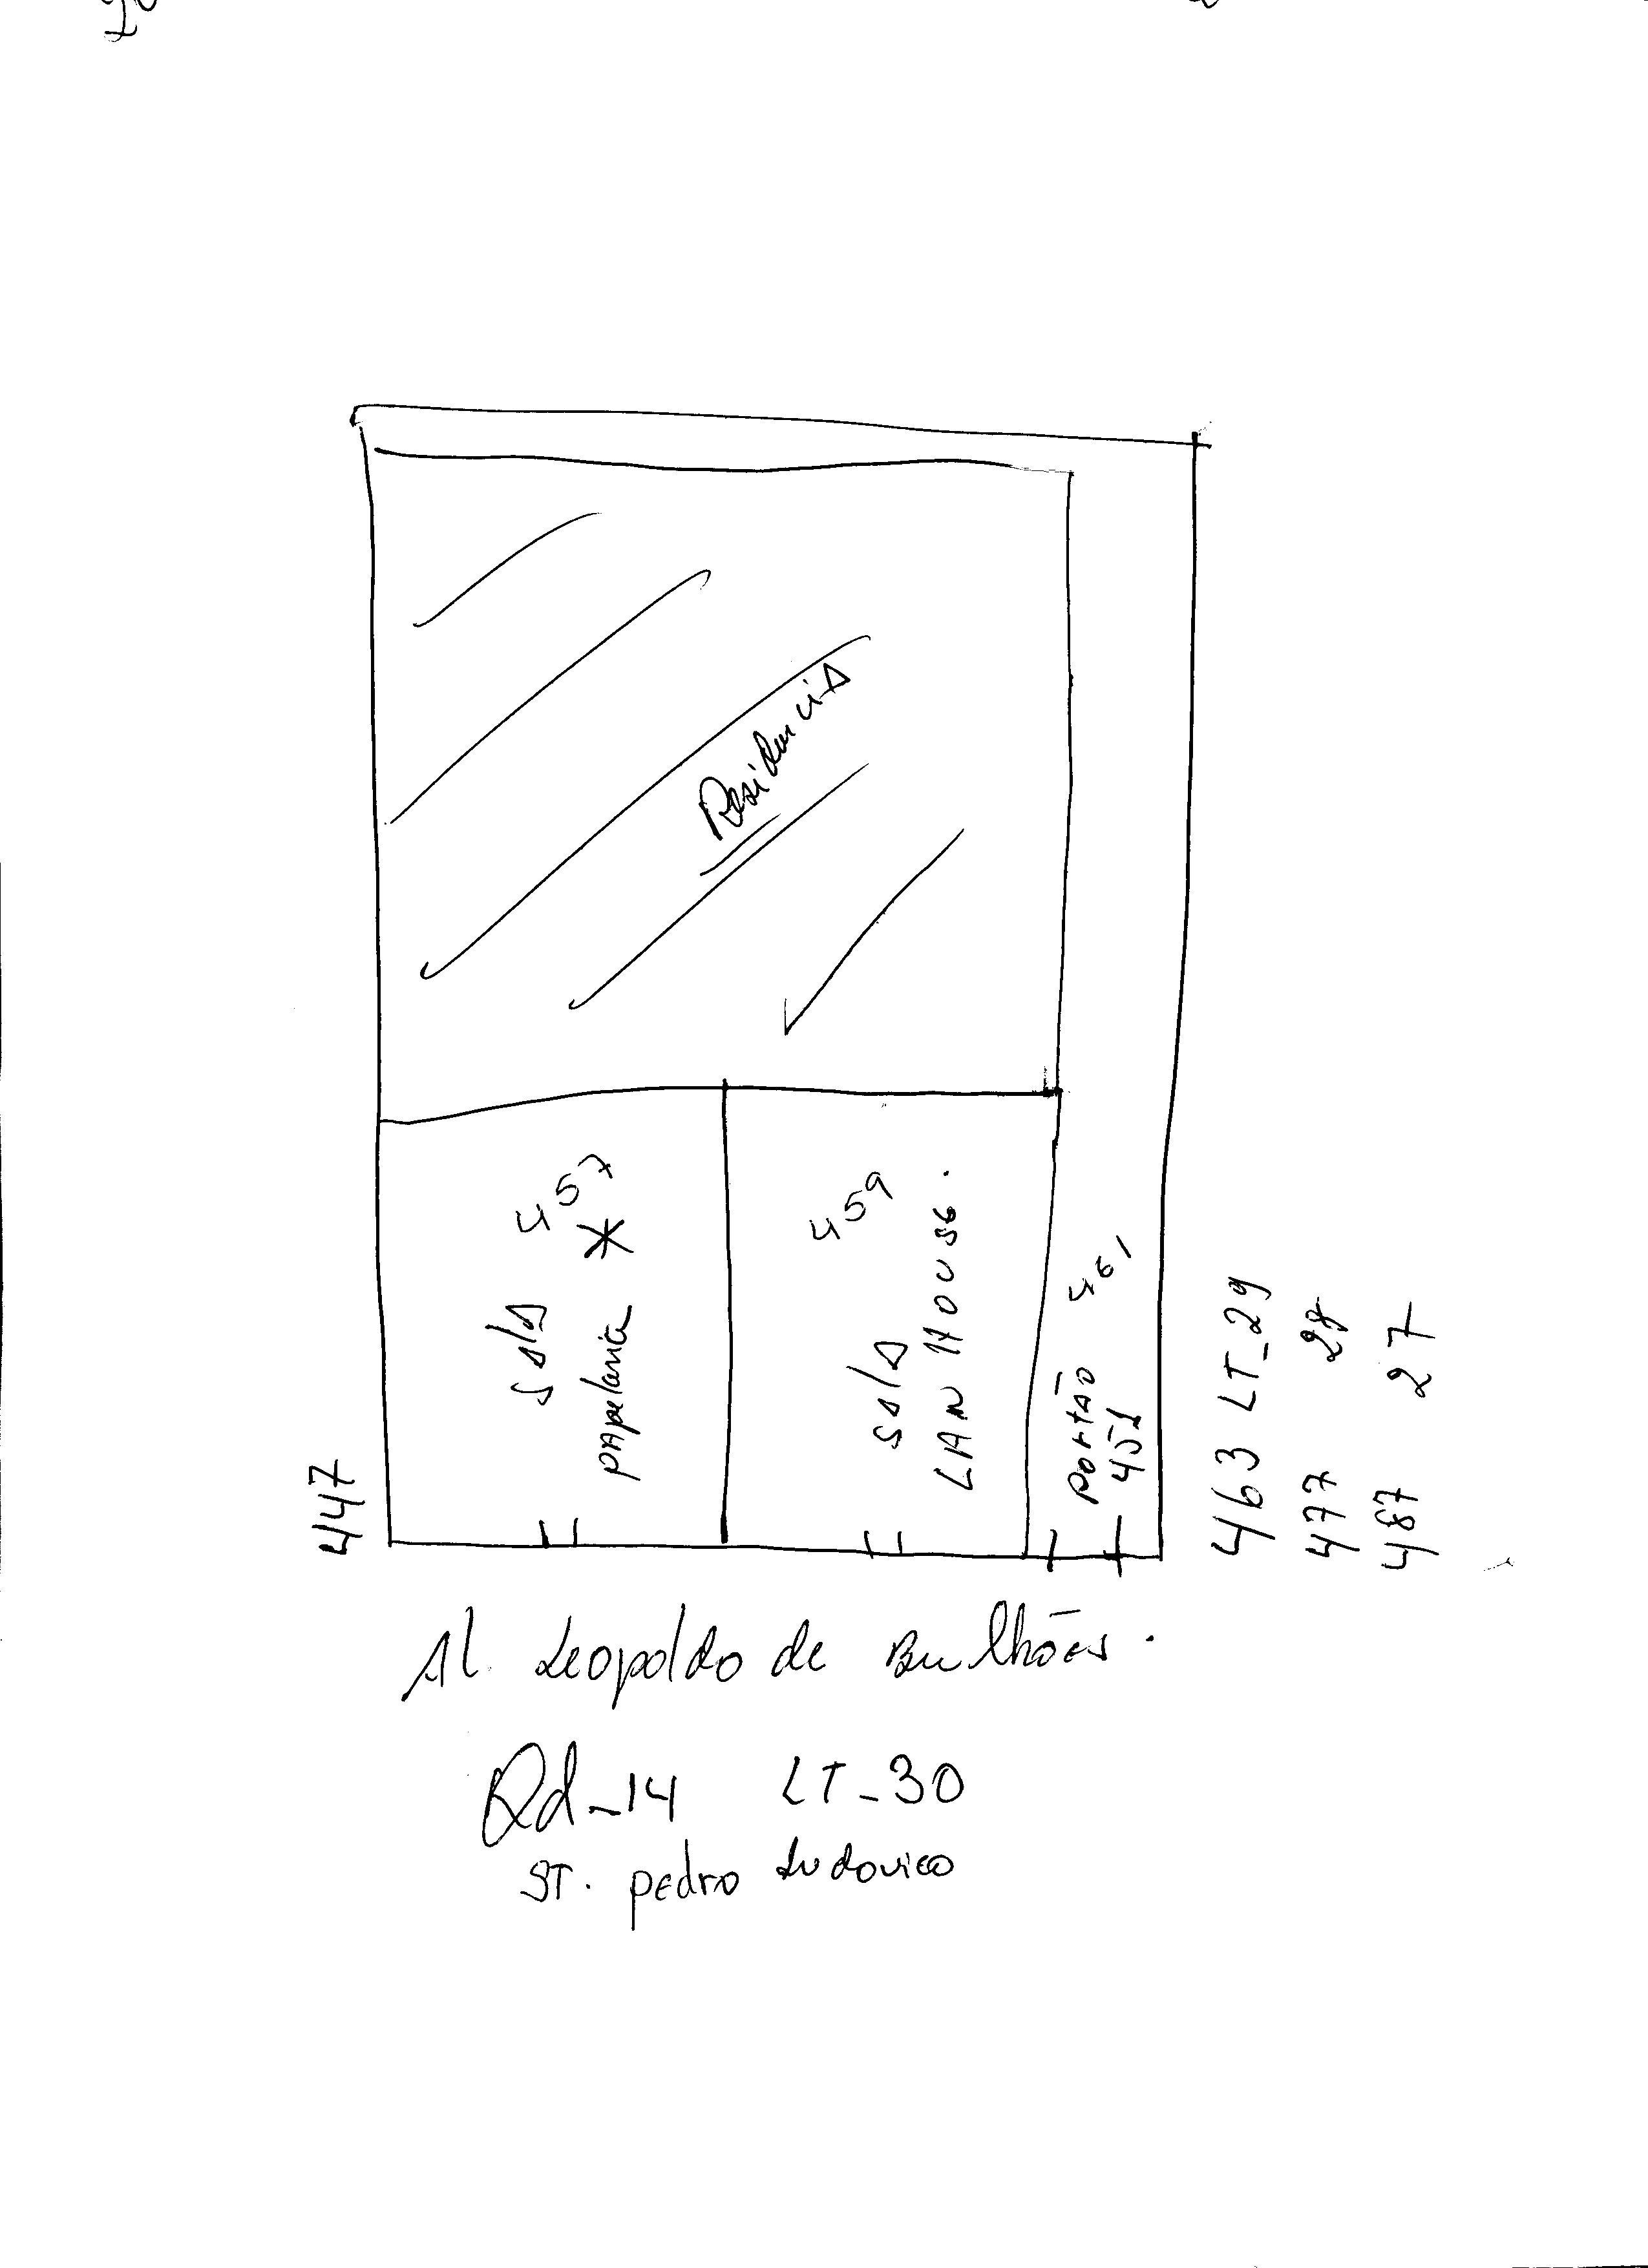 Residencia
457
sala
papelaria *
459
sala
LAN House.
461
portão
451
447
463 LT_29
477 28
487 27
Al. Leopoldo de Bulhões.
Qd_14 LT_30
ST. pedro Ludovico